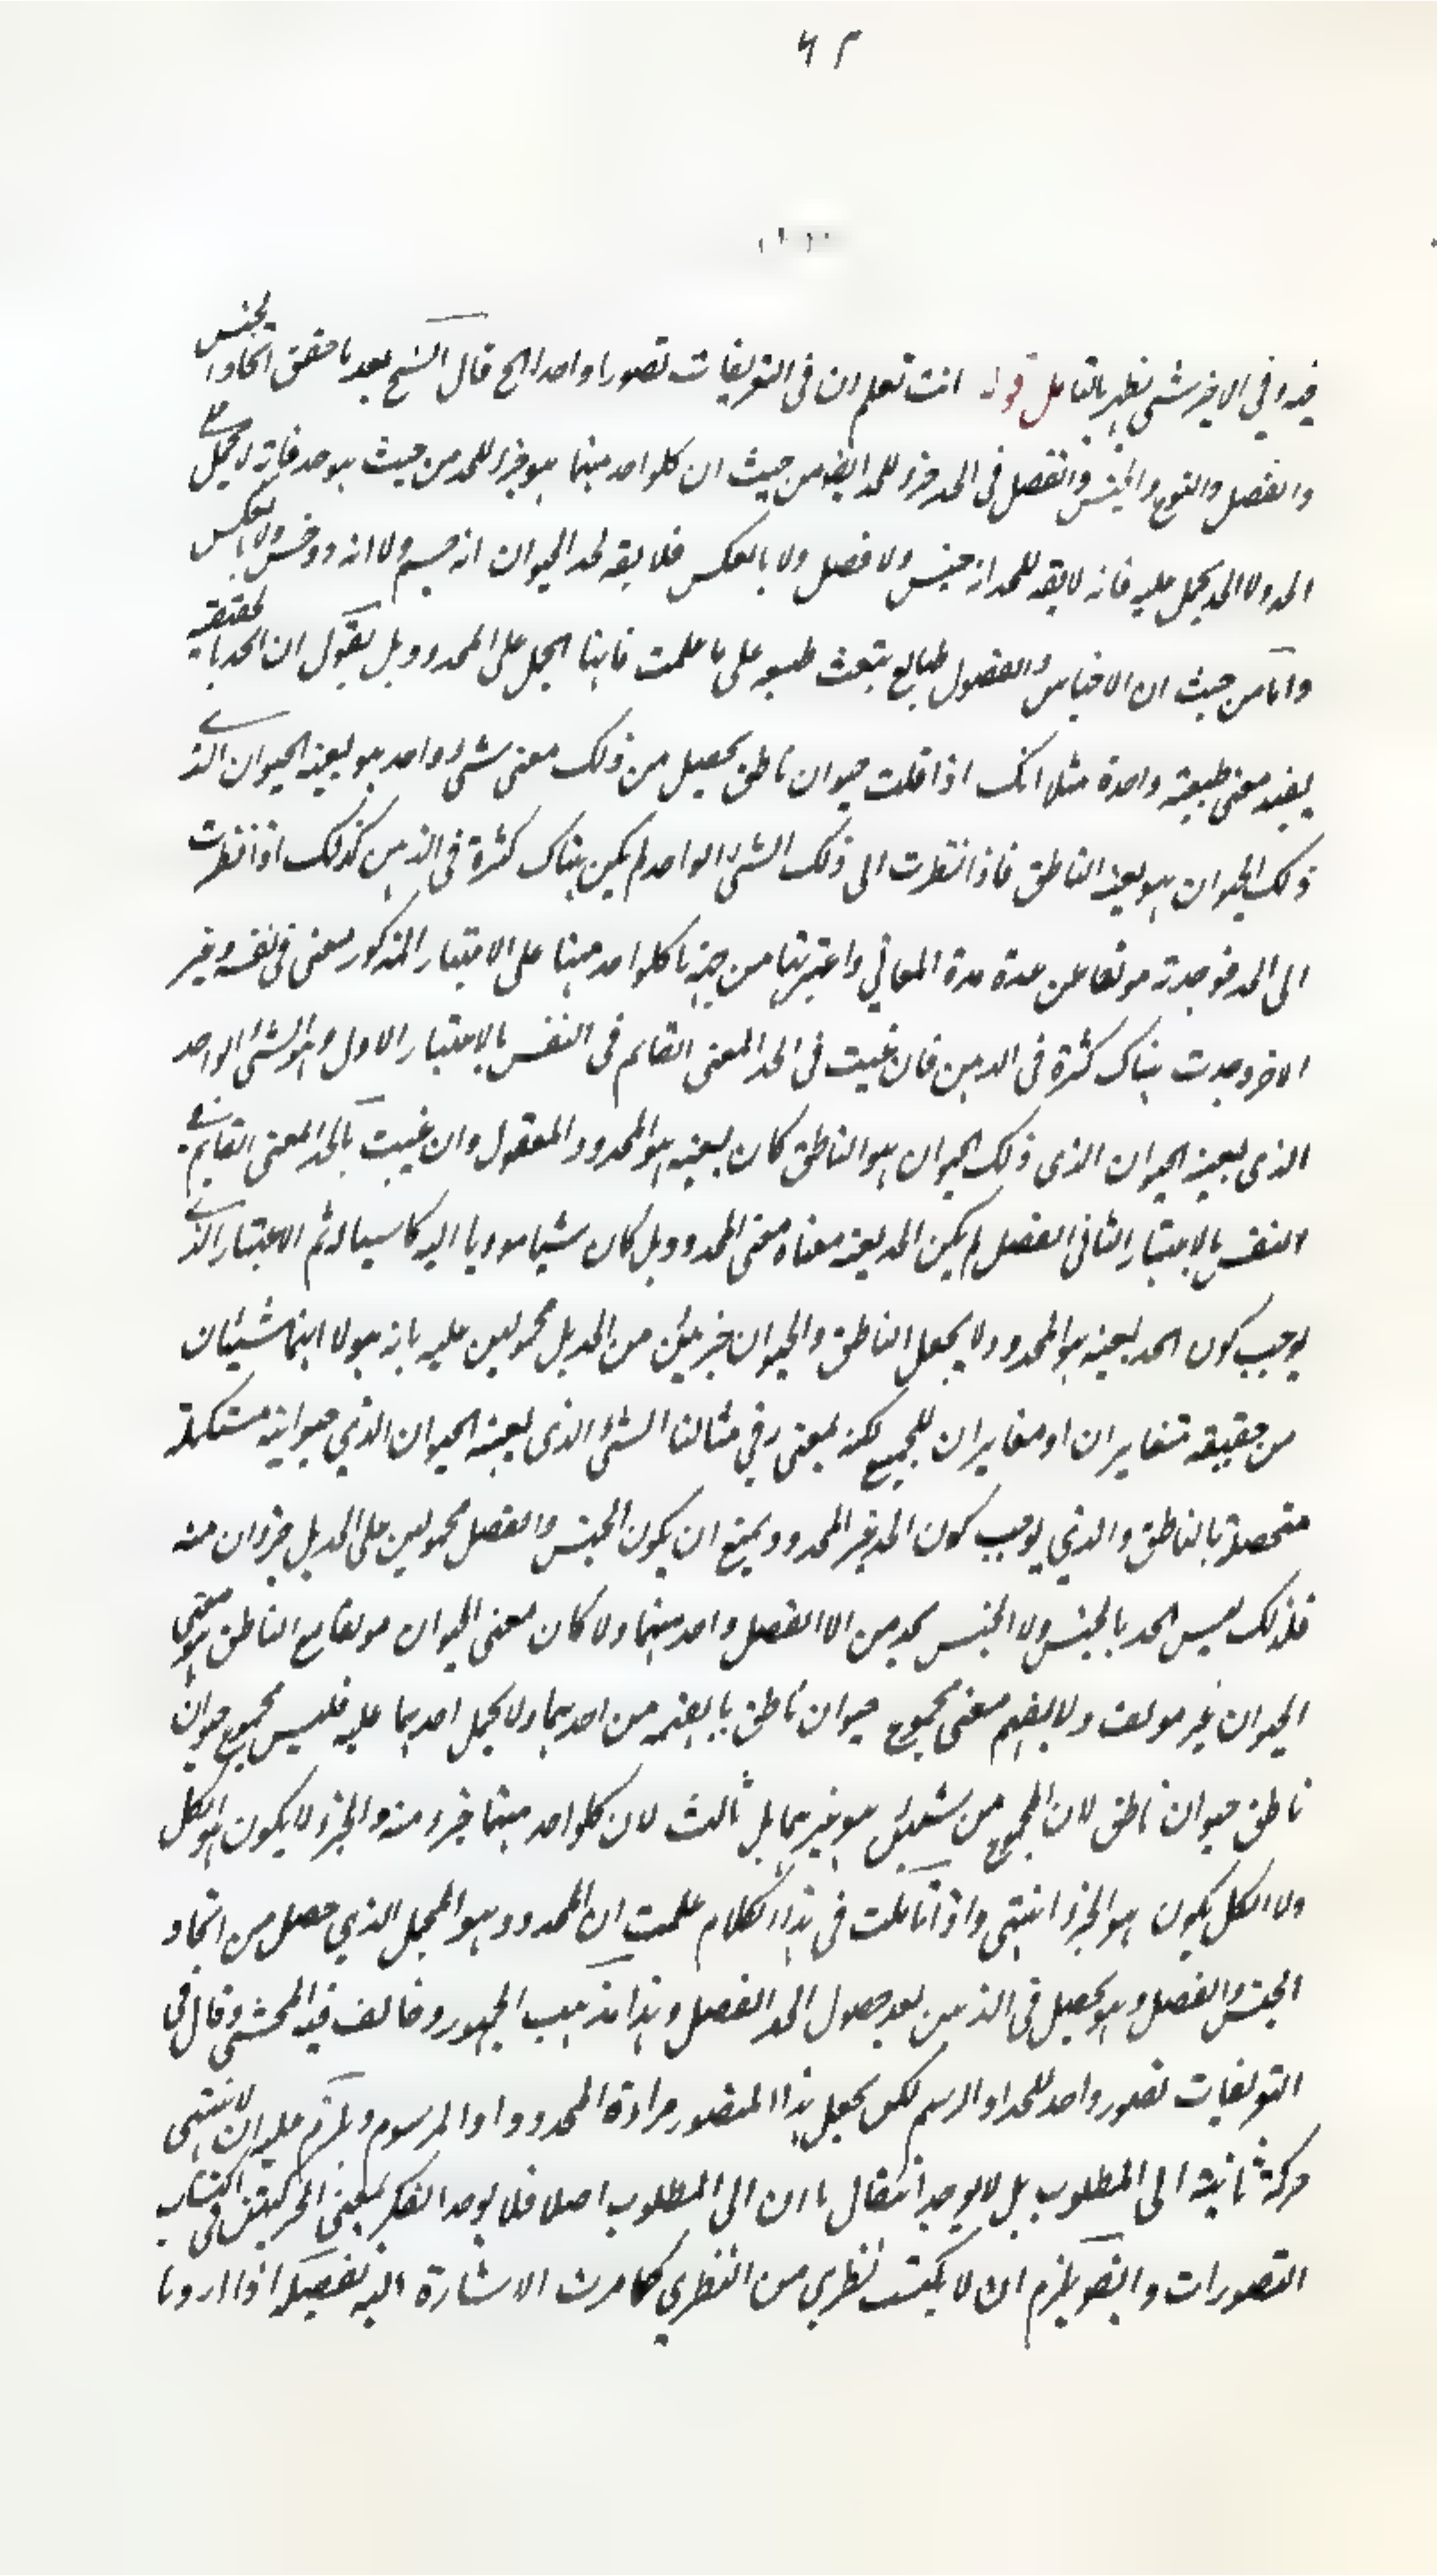 ٦٢
فيه وفي الاخير شئ يظهر بالتامل قوله انت تعلم ان فى التعريفات تصورا واحدا الخ قال الشيخ بعد ما حقق اتحاد الجنس
والفصل والنوع والجنس والفصل فى الحد جزء للحد ايضا من حيث ان كلواحد منهما هو جزء للحد من حيث هو حد فانه لا يحمل على
الحد ولا الحد يحمل عليه فانه لا يقه للحد انه جنس ولا فصل ولا بالعكس فلا يقه لحد الحيوان انه جسم ولا انه ذو حس ولا بالعكس
واما من حيث ان الاجناس والفصول طبايع تنعت طبيعة على ما علمت فانها تحمل على المحدود بل نقول ان الحد بالحقيقة
يفيد معنى طبيعة واحدة مثلا انك اذا قلت حيوان ناطق يحصل من ذلك معنى شئ واحد هو بعينه الحيوان الذي
ذلك الحيوان هو بعينه الناطق فاذا نظرت الى ذلك الشئ الواحد لم يكن هناك كثرة فى الذهن كذلك اذا نظرت
الى الحد فوجدته مولفا من عدة هذه المعاني واعتبرتها من جهة ما كلواحد منها على الاعتبار المذكور معنى فى نفسه وغير
الاخر وجدت هناك كثرة فى الذهن فان عنيت فى الحد المعنى القائم فى النفس بالاعتبار الاول وهو الشئ الواحد
الذى بعينه الحيوان الذى ذلك الحيوان هو الناطق كان بعينه هو المحدود المعقول وان عنيت بالحد المعنى القايم في
النفس بالاعتبار الثانى الفصل لم يكن الحد بعينه معناه معنى المحدود بل كان شيئا موديا اليه كاسبا له ثم الاعتبار الذي
يوجب كون الحد بعينه هو المحدود لا يجعل الناطق والحيوان جزئين من الحد بل محمولين عليه بانه هو لا انهما شيئان
من حقيقة متغايران او مغايران للجميع لكن يعنى به في مثالنا الشئ الذى بعينه الحيوان الذي حيوانيته مستكملة
متحصلة بالناطق والذي يوجب كون الحد غير المحدود يمنع ان يكون الجنس والفصل محمولين على الحد بل جزءان منه
فلذلك ليس الحد بالجنس ولا الجنس بحد من الا الفصل واحد منهما ولا كان معنى الحيوان مولفا مع الناطق هو معنى
الحيوان غير مولف ولا يفهم معنى مجموع حيوان ناطق ما يفهم من احدهما ولا يحمل احدهما عليه فليس مجموع حيوان
ناطق حيوان ناطق لان المجموع من شيئين هو غيرهما بل ثالث لان كلواحد منهما جزء منه والجزء لا يكون هو الكل
ولا الكل يكون هو الجزء انتهى واذا تاملت فى هذا الكلام علمت ان المحدود هو المجمل الذي حصل من اتحاد
الجنس والفصل وهو يحصل فى الذهن بعد حصول الحد الفصل وهذا مذهب الجمهور وخالف فيه المحشي وقال في
التعريفات تصور واحد للحد او الرسم لكن يجعل هذا المتصور مرادة المحدود او المرسوم ويلزم عليه ان لا ينتهي
حركة ثانية الى المطلوب بل لا يوجد انتقال ما ان الى المطلوب اصلا فلا يوجد الفكر بمعنى الحركتين في اكتساب
التصورات وايضو يلزم ان لا يكتسب نظري من النظري كما مرت الاشارة اليه تفصيله اذا اردنا